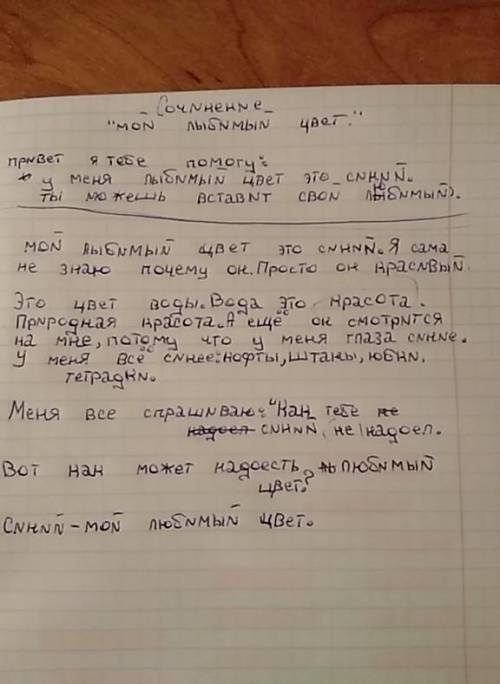 Сочинение
"мой лыбимый цвет."
привет я тебе помогу:
у меня лыбимый цвет это синий.
ты можешь вставит свой лыбимый).
мой лыбимый цвет это синий. Я сама
не знаю почему он. Просто он красивый.
Это цвет воды. Вода это красота.
Природная красота. А ещё он смотрится
на мне, потому что у меня глаза синие.
У меня всё синее: кофты, штаны, юбки,
тетрадки.
Меня все спрашиваю: "Как тебе не
надоел синий, не надоел.
Вот как может надоесть любимый
цвет?
Синий - мой любимый цвет.